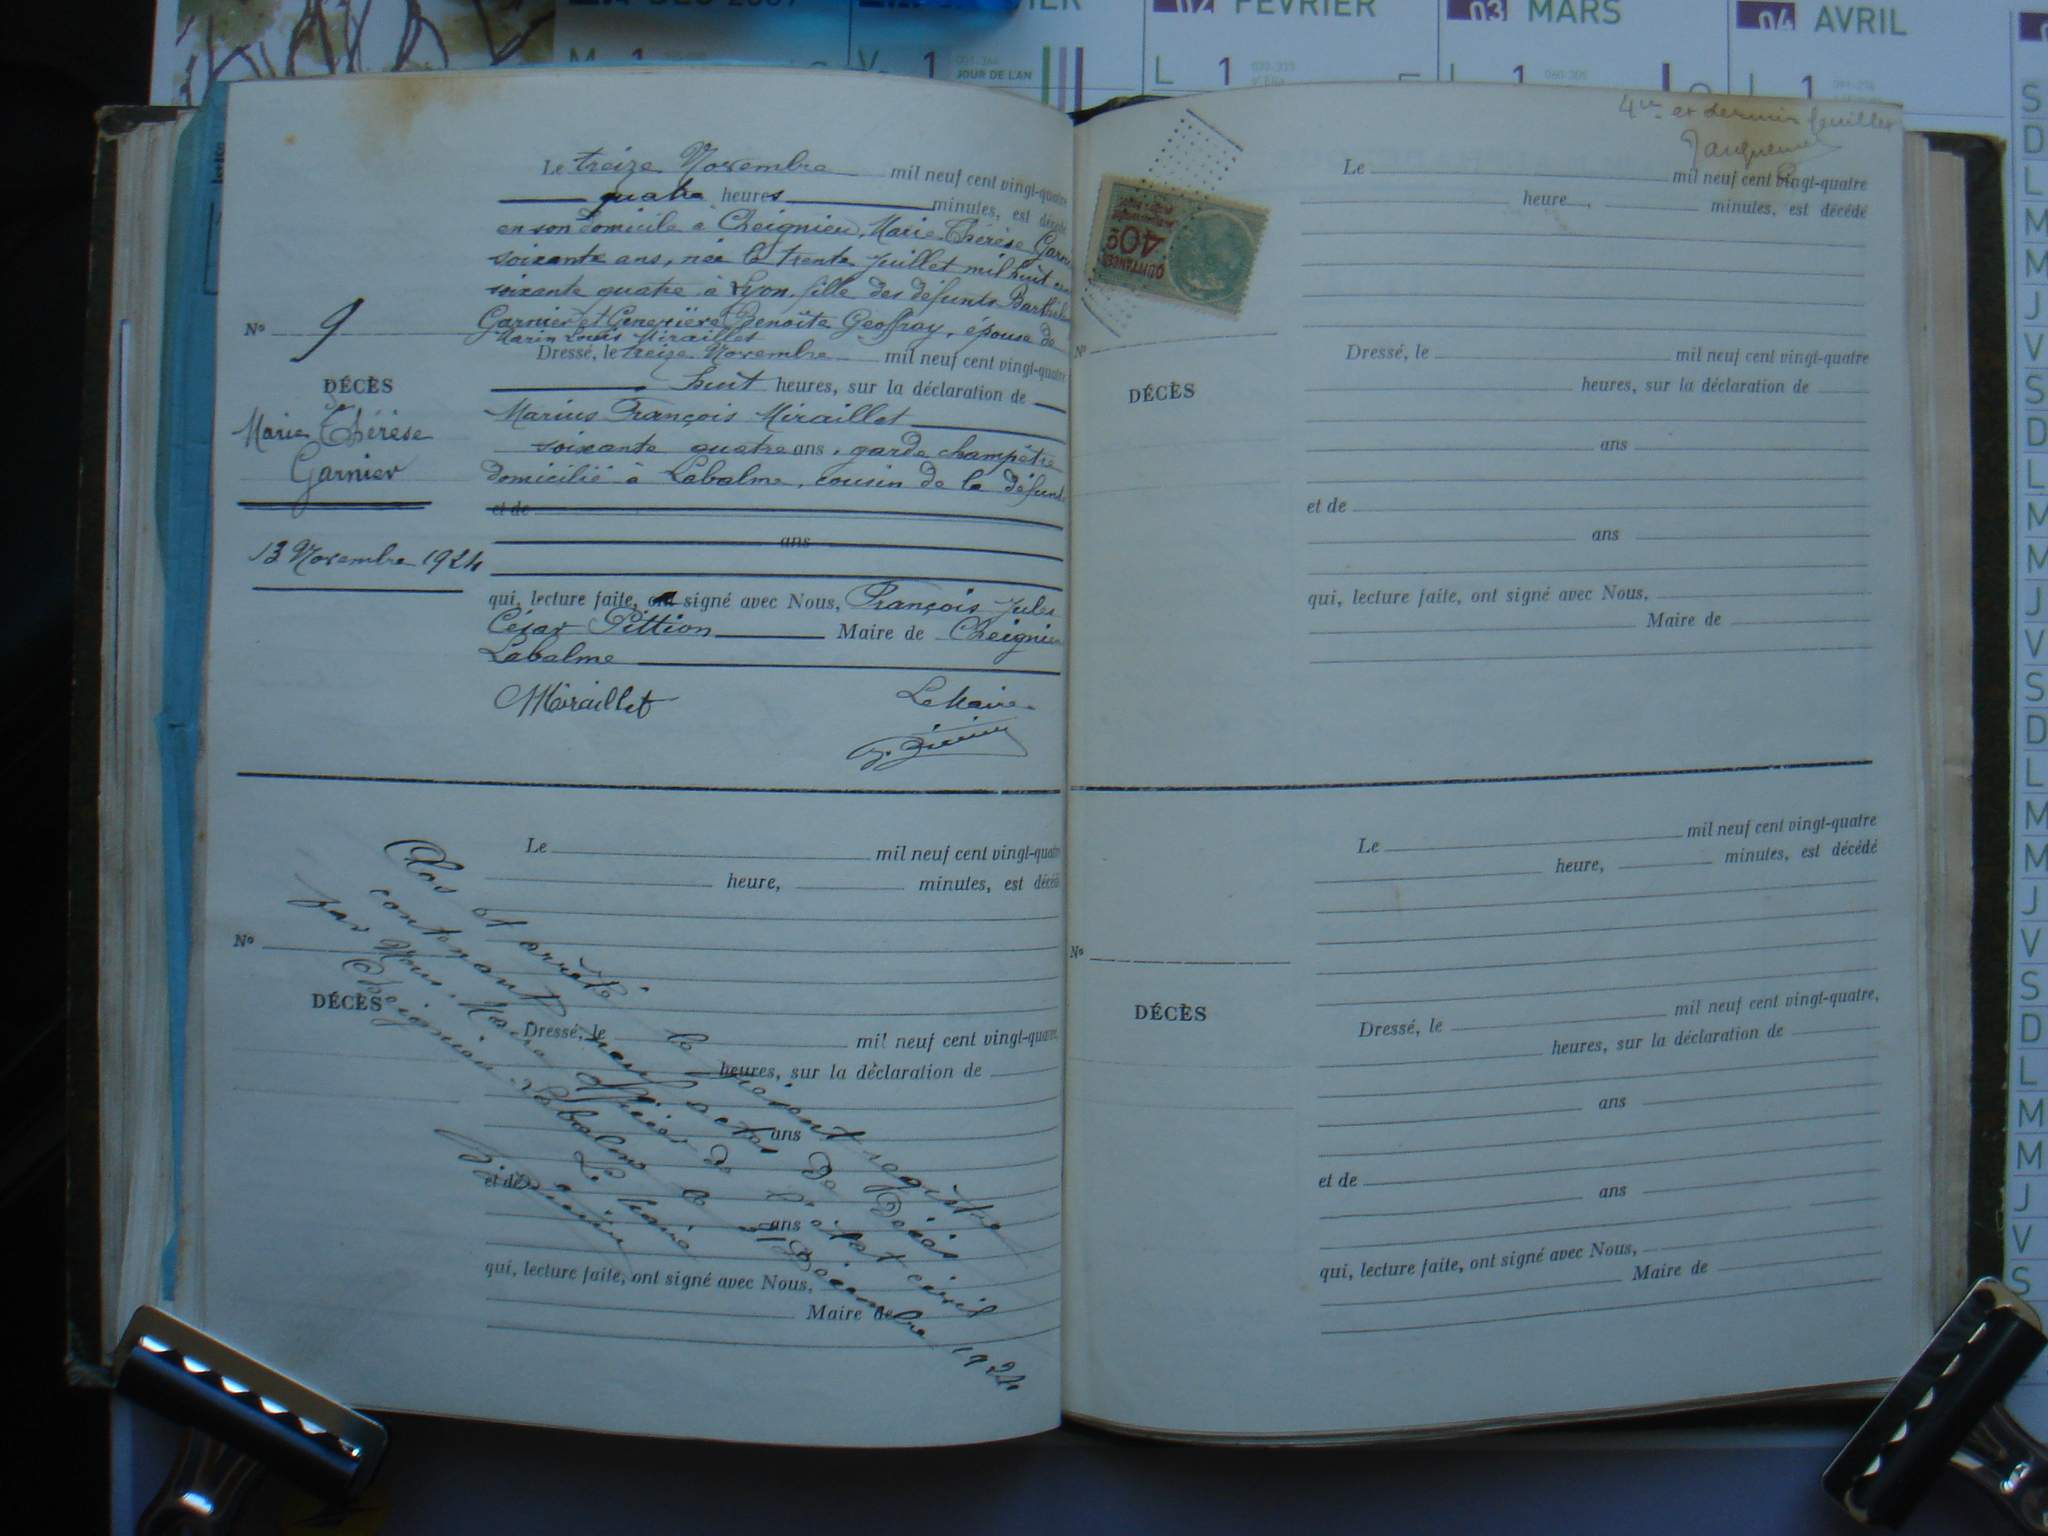 DEC 2007
02 FÉVRIER
03 MARS
04 AVRIL
M 1
V 1
JOUR DE L'AN
L 1
L 1
L 1
Le treize Novembre mil neuf cent vingt-quatre
quatre heures minutes, est décédé
en son domicile à Cheignieu, Marie Thérèse Garn
soixante ans, née le trente Juillet mil huit cen
soixante quatre à Lyon, fille des défunts Barthéle
Garnier et Geneviève Benoîte Geoffray, épouse de
Marin Louis Miraillet
Nº 9
Dressé, le treize Novembre mil neuf cent vingt-quatre
huit heures, sur la déclaration de
DÉCÈS
Marie Thérèse
Garnier
13 Novembre 1924
Marius François Miraillet
soixante quatre ans, garde champêtre
domicilié à Labalme, cousin de la défunte
et de
ans
qui, lecture faite, ont signé avec Nous, François Jules
César Pittion Maire de Cheignieu
Labalme
Miraillet
Le Maire
Le mil neuf cent vingt-quatre
heure, minutes, est décédé
Nº
DÉCÈS
Dressé, le mil neuf cent vingt-quatre,
heures, sur la déclaration de
ans
et de
ans
qui, lecture faite, ont signé avec Nous,
Maire de
Clos et arrêté le présent registre
contenant neuf actes de Décès
par Nous, Maire Officier de l'état civil
Cheignieu Labalme le 31 Décembre 1924
Le Maire
4me et dernier feuillet
Jacquemet
QUITTANCES
40c
Le mil neuf cent vingt-quatre
heure, minutes, est décédé
Nº
Dressé, le mil neuf cent vingt-quatre
heures, sur la déclaration de
DÉCÈS
ans
et de
ans
qui, lecture faite, ont signé avec Nous,
Maire de
Le mil neuf cent vingt-quatre
heure, minutes, est décédé
Nº
DÉCÈS
Dressé, le mil neuf cent vingt-quatre,
heures, sur la déclaration de
ans
et de
ans
qui, lecture faite, ont signé avec Nous,
Maire de
S
D
L
M
M
J
V
S
D
L
M
M
J
V
S
D
L
M
M
J
V
S
D
L
M
M
J
V
S